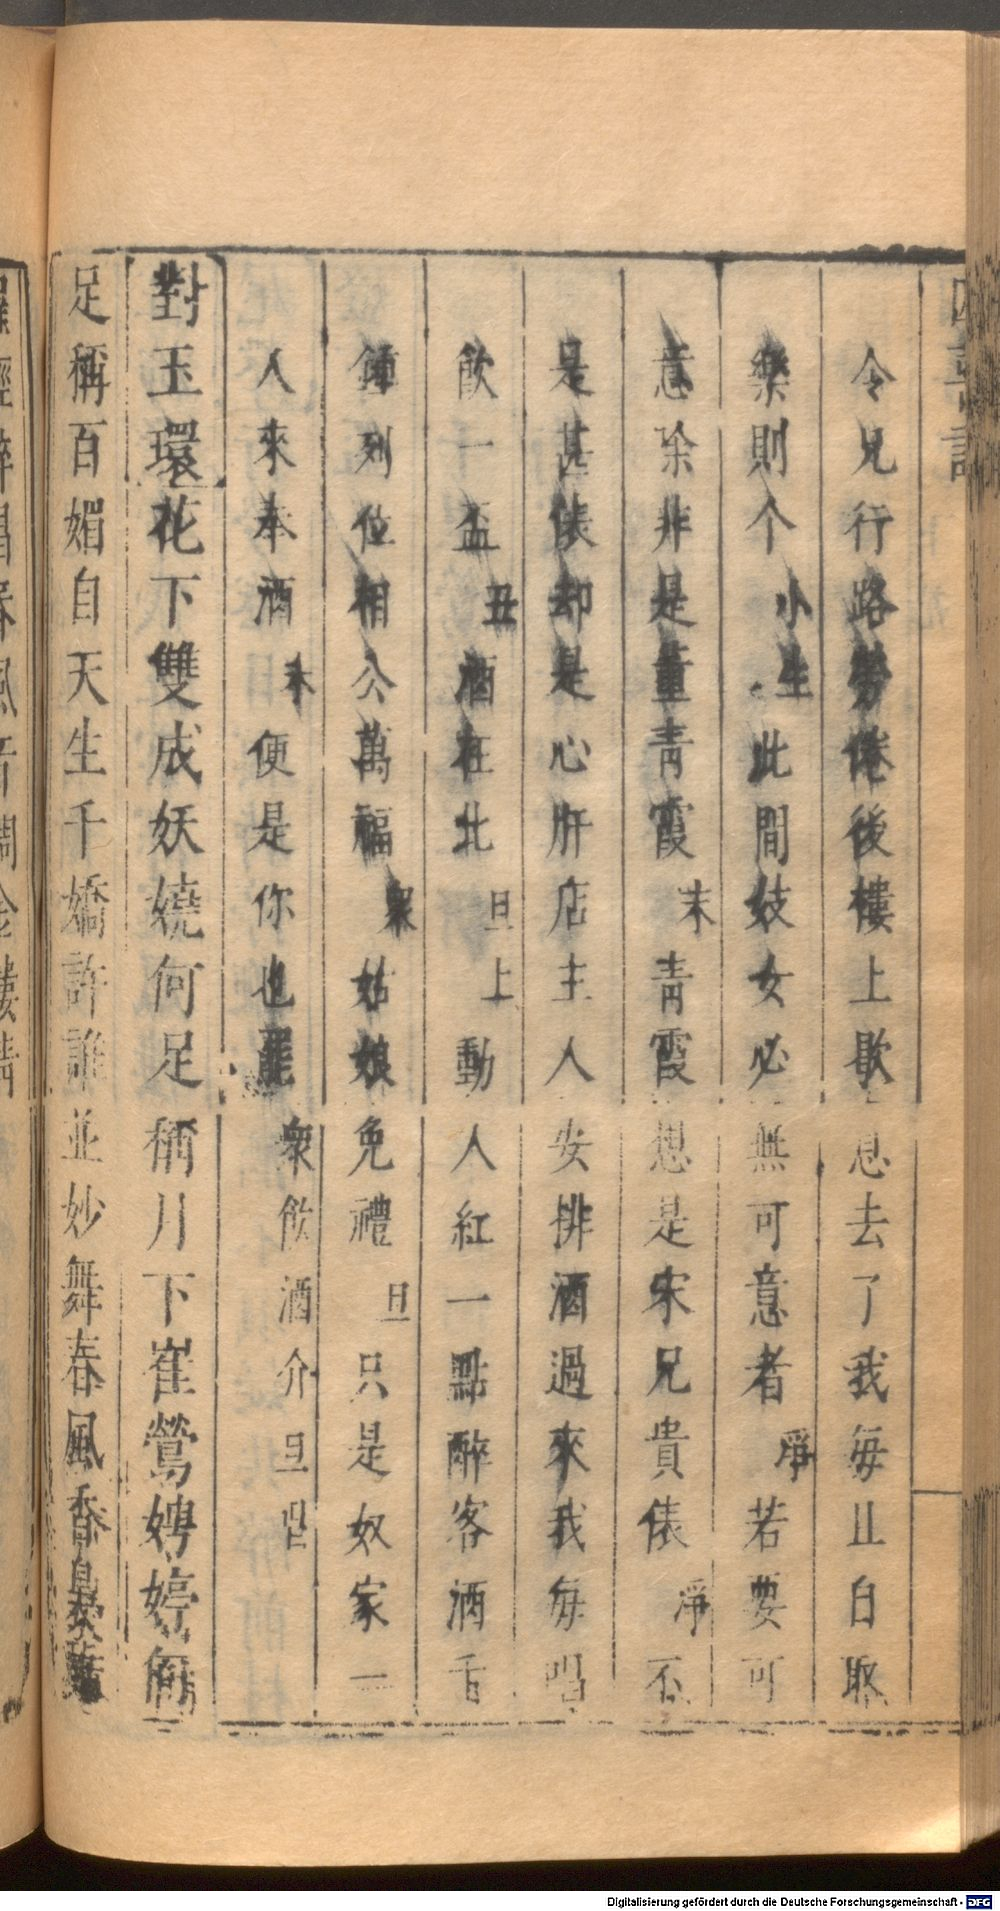 令兄行路勞倦後樓上歇息去了我每止自取
樂則个小生此間妓女必無可意者淨若要可
意除非是董青霞末青霞想是宋兄貴俵淨不
是甚俵却是心肝店主人安排酒過來我每唱
飲一盃丑酒在北旦上動人紅一點醉客酒舌
鍾列位相公萬福衆姑娘免禮旦只是奴家一
人來奉酒末便是你也罷衆飲酒介旦唱
對玉環花下雙成妖嬈何足稱月下崔鶯娉婷何
足稱百媚自天生千嬌許誰並妙舞春風香
Digitalisierung gefördert durch die Deutsche Forschungsgemeinschaft - DFG